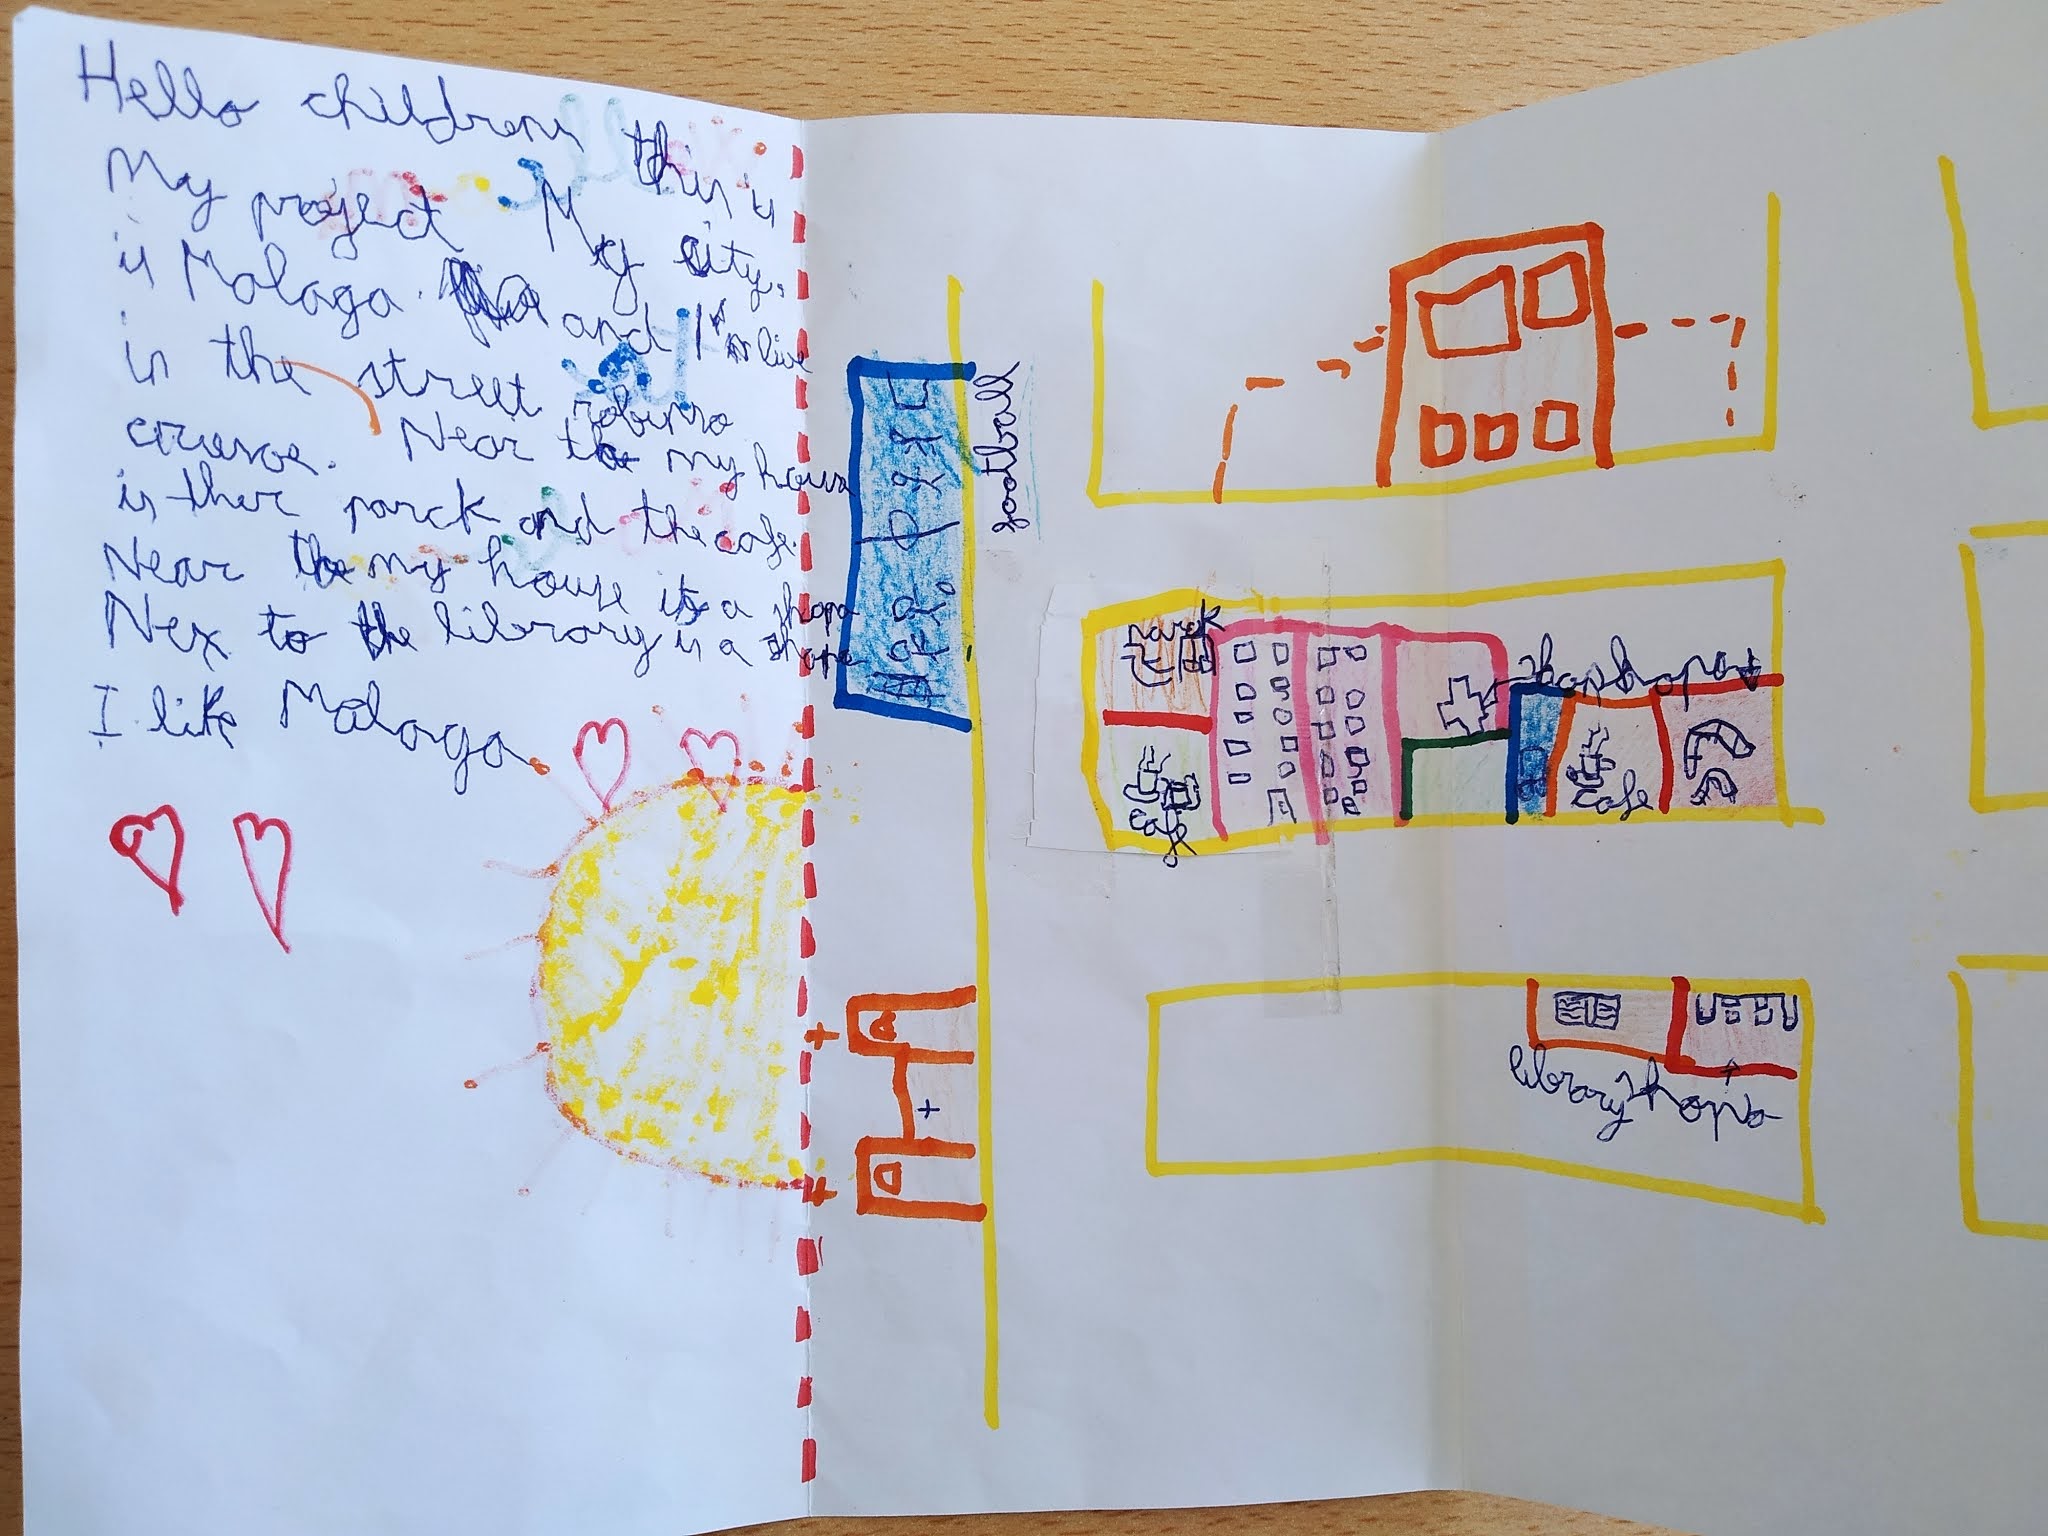 Hello childrens this is
My project My city.
is Malaga. and I'm live
in the street robinso
crusoe. Near to my house
is ther parck and the cafe.
Near to my house is a shops
Nex to the library is a shops
I like Malaga
football
parck
cafe
shop shops
cafe
library shops